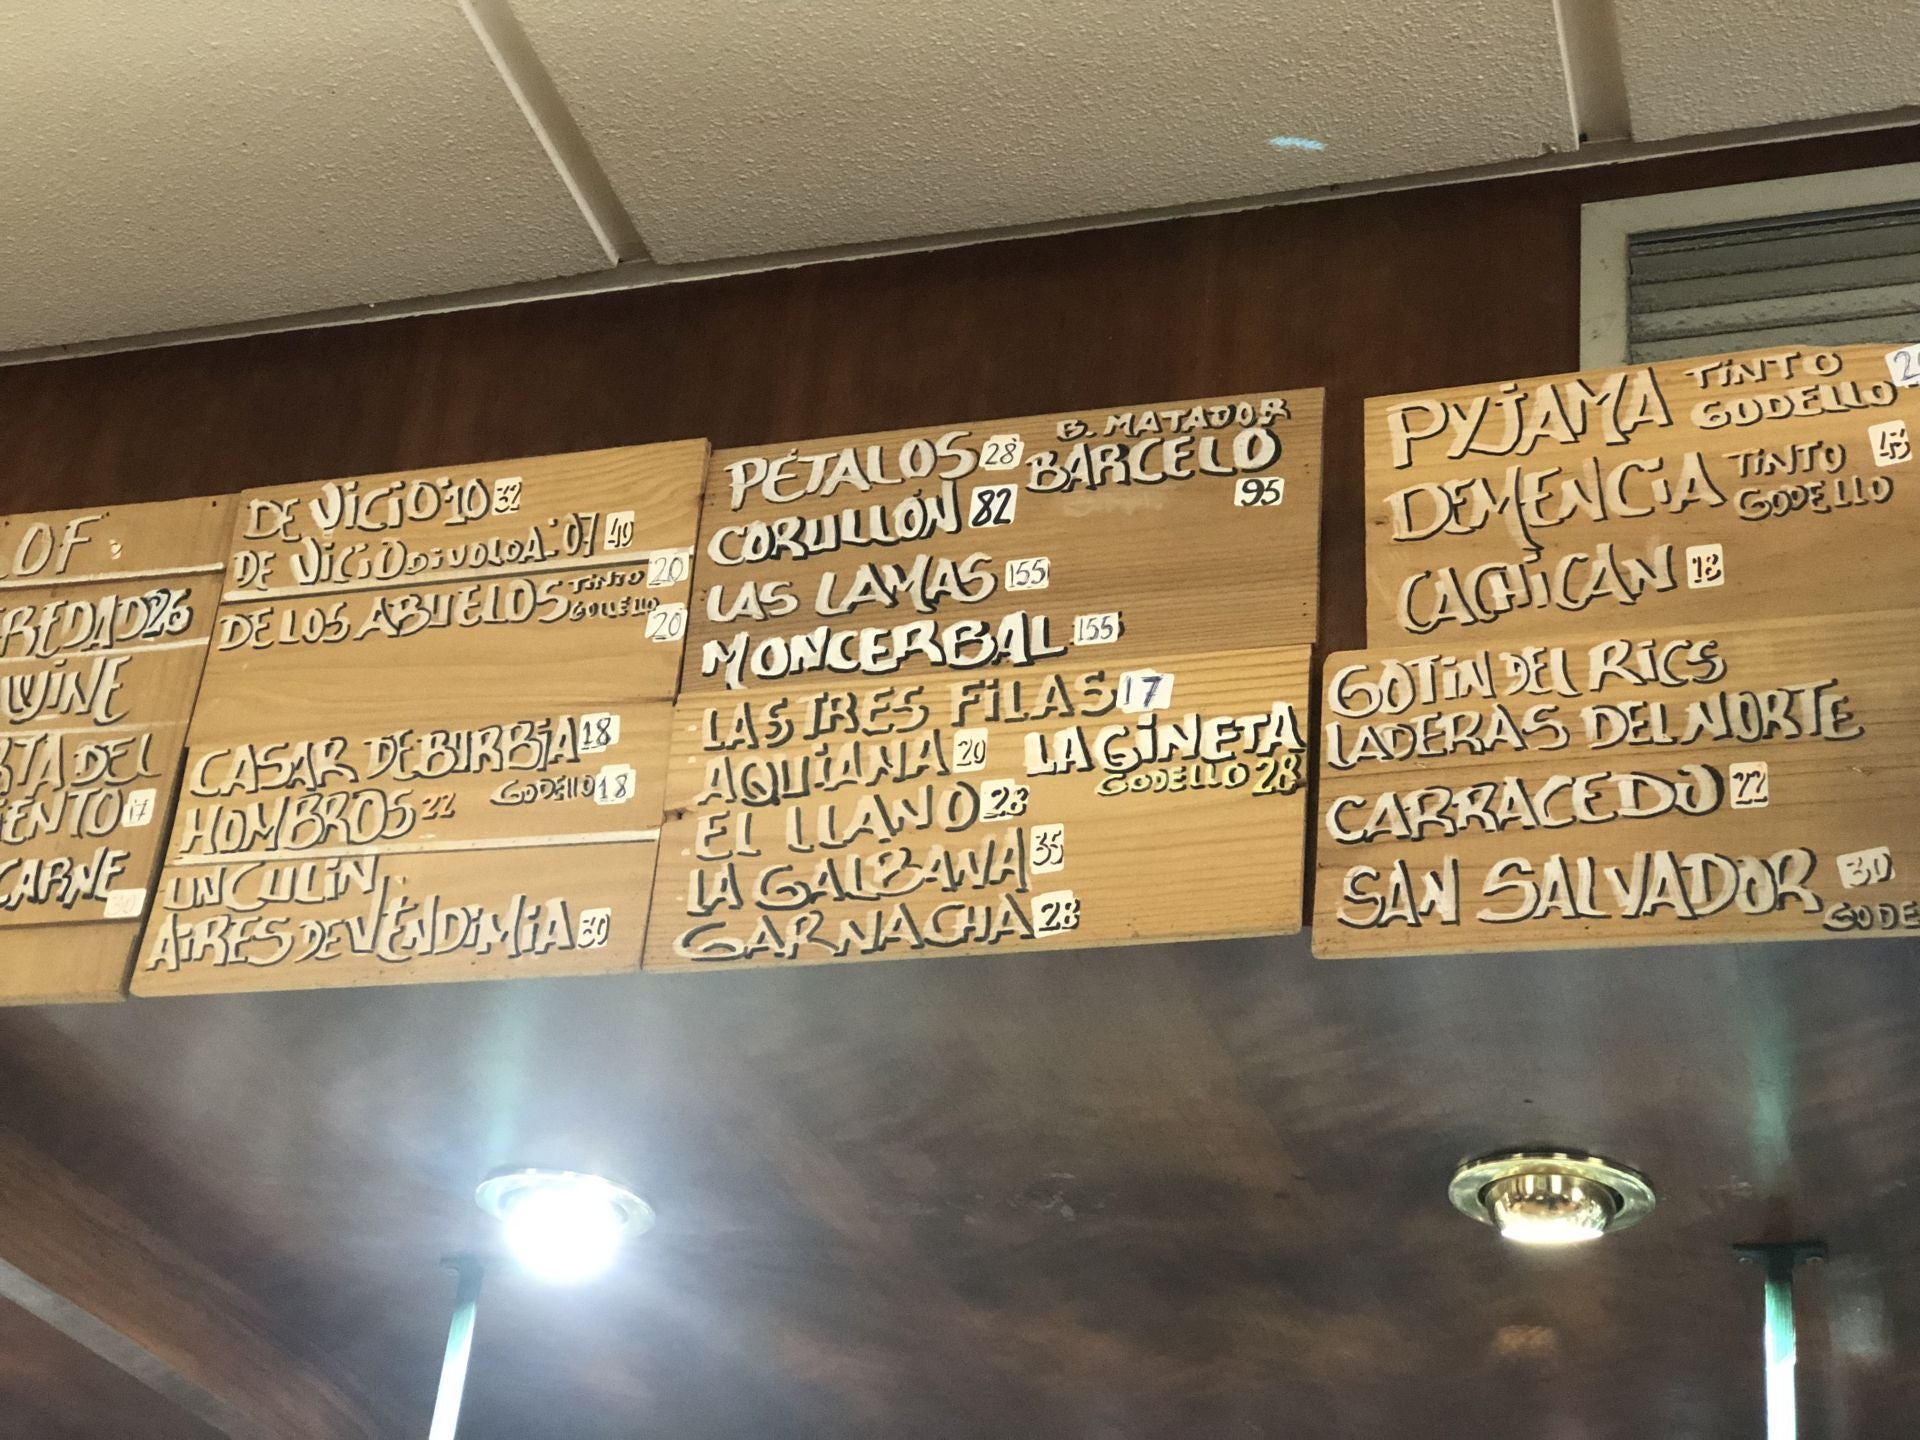 LOF
REDAD 26
WINE
TA DEL
IENTO 17
CARNE 30
DE VICIO 10 32
DE VICIO DIVOLOA 07 49
DE LOS ABUELOS TINTO 20
GODELLO 20
CASAR DE BURBIA 18
GODELLO 18
HOMBROS 22
UN CULIN
AIRES DE VENDIMIA 30
PÉTALOS 28
CORULLÓN 82
LAS LAMAS 155
MONCERBAL 155
B. MATADOR
BARCELO
95
LAS TRES FILAS 17
AQUIANA 20
LA GINETA
GODELLO 28
EL LLANO 28
LA GALBANA 35
GARNACHA 28
PYJAMA TINTO
GODELLO
DEMENCIA TINTO
GODELLO
CACHICÁN 18
GOTIN DEL RICS
LADERAS DEL NORTE
CARRACEDO 22
SAN SALVADOR 30
GODE